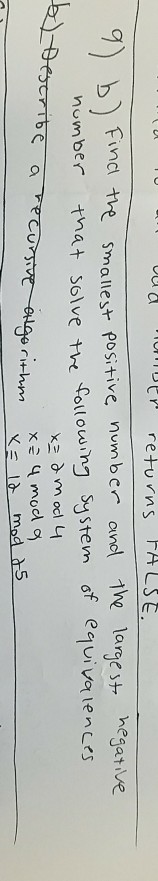 returns FALSE.
9) b) Find the smallest positive number and the largest negative
number that solve the following system of equivalences
x ≡ 2 mod 4
b) Describe a recursive algorithm x ≡ 4 mod 9
x ≡ 12 mod 25